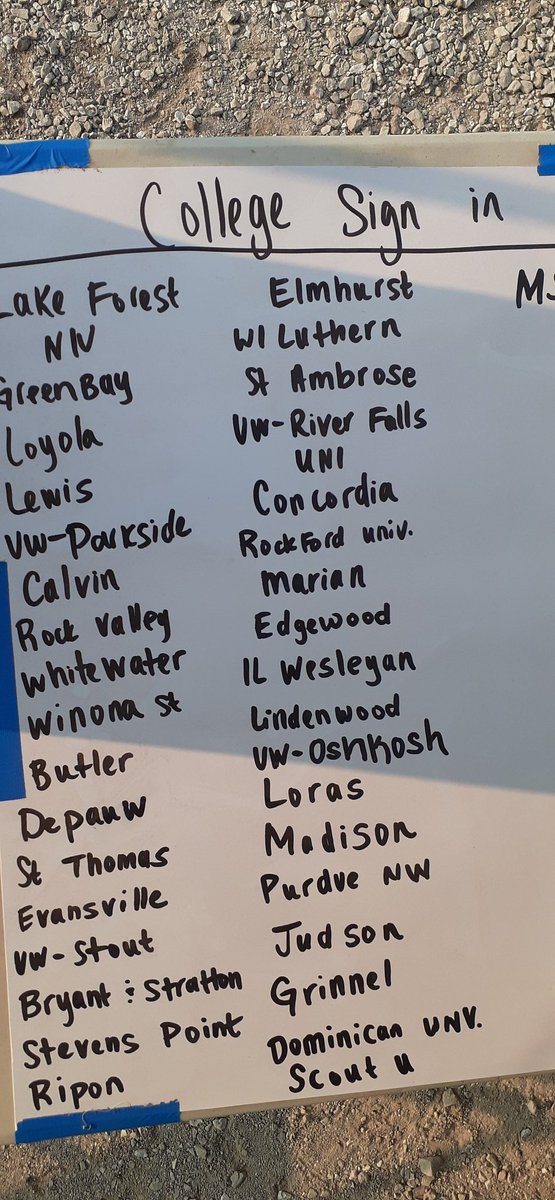 College Sign in
Lake Forest
NIU
GreenBay
Loyola
Lewis
UW-Parkside
Calvin
Rock Valley
Whitewater
Winona St
Butler
Depauw
St Thomas
Evansville
UW-Stout
Bryant & Stratton
Stevens Point
Ripon
Elmhurst
WI Luthern
St Ambrose
UW-River Falls
UNI
Concordia
Rockford univ.
Marian
Edgewood
IL Wesleyan
Lindenwood
UW-Oshkosh
Loras
Madison
Purdue NW
Judson
Grinnel
Dominican UNV.
Scout U